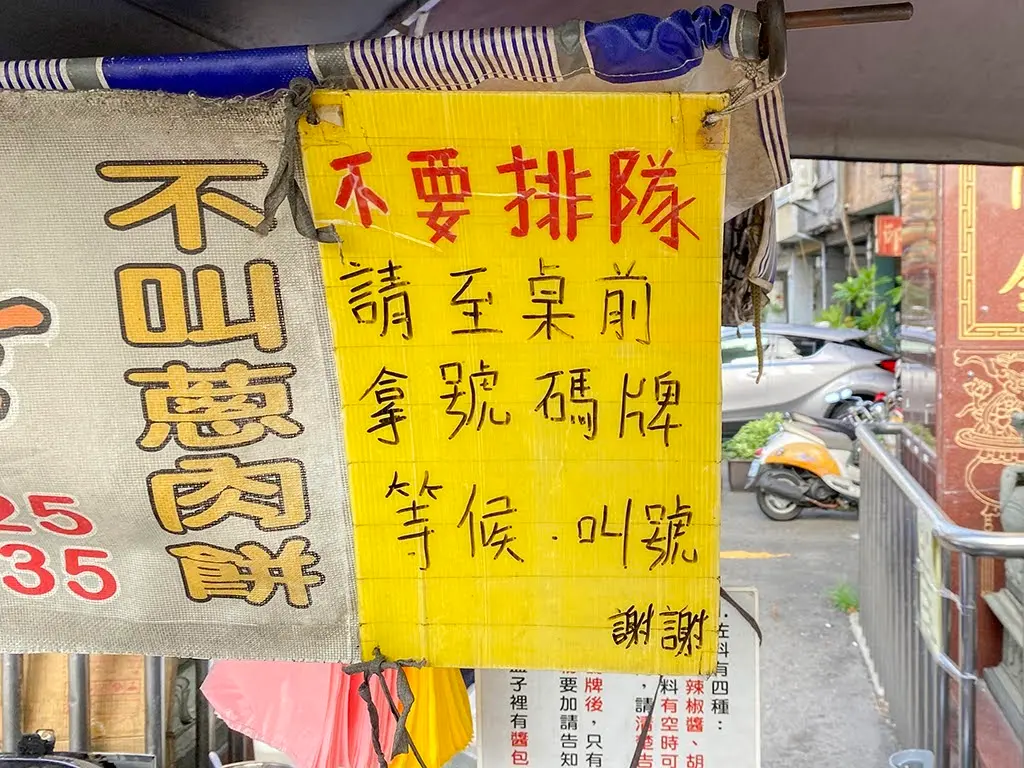 不叫蔥肉餅
25
35
不要排隊
請至桌前
拿號碼牌
等候.叫號
謝謝
.佐料有四種：
辣椒醬、胡
料有空時可
，請清楚告
牌後，只有
需要加請告知
盒子裡有醬包